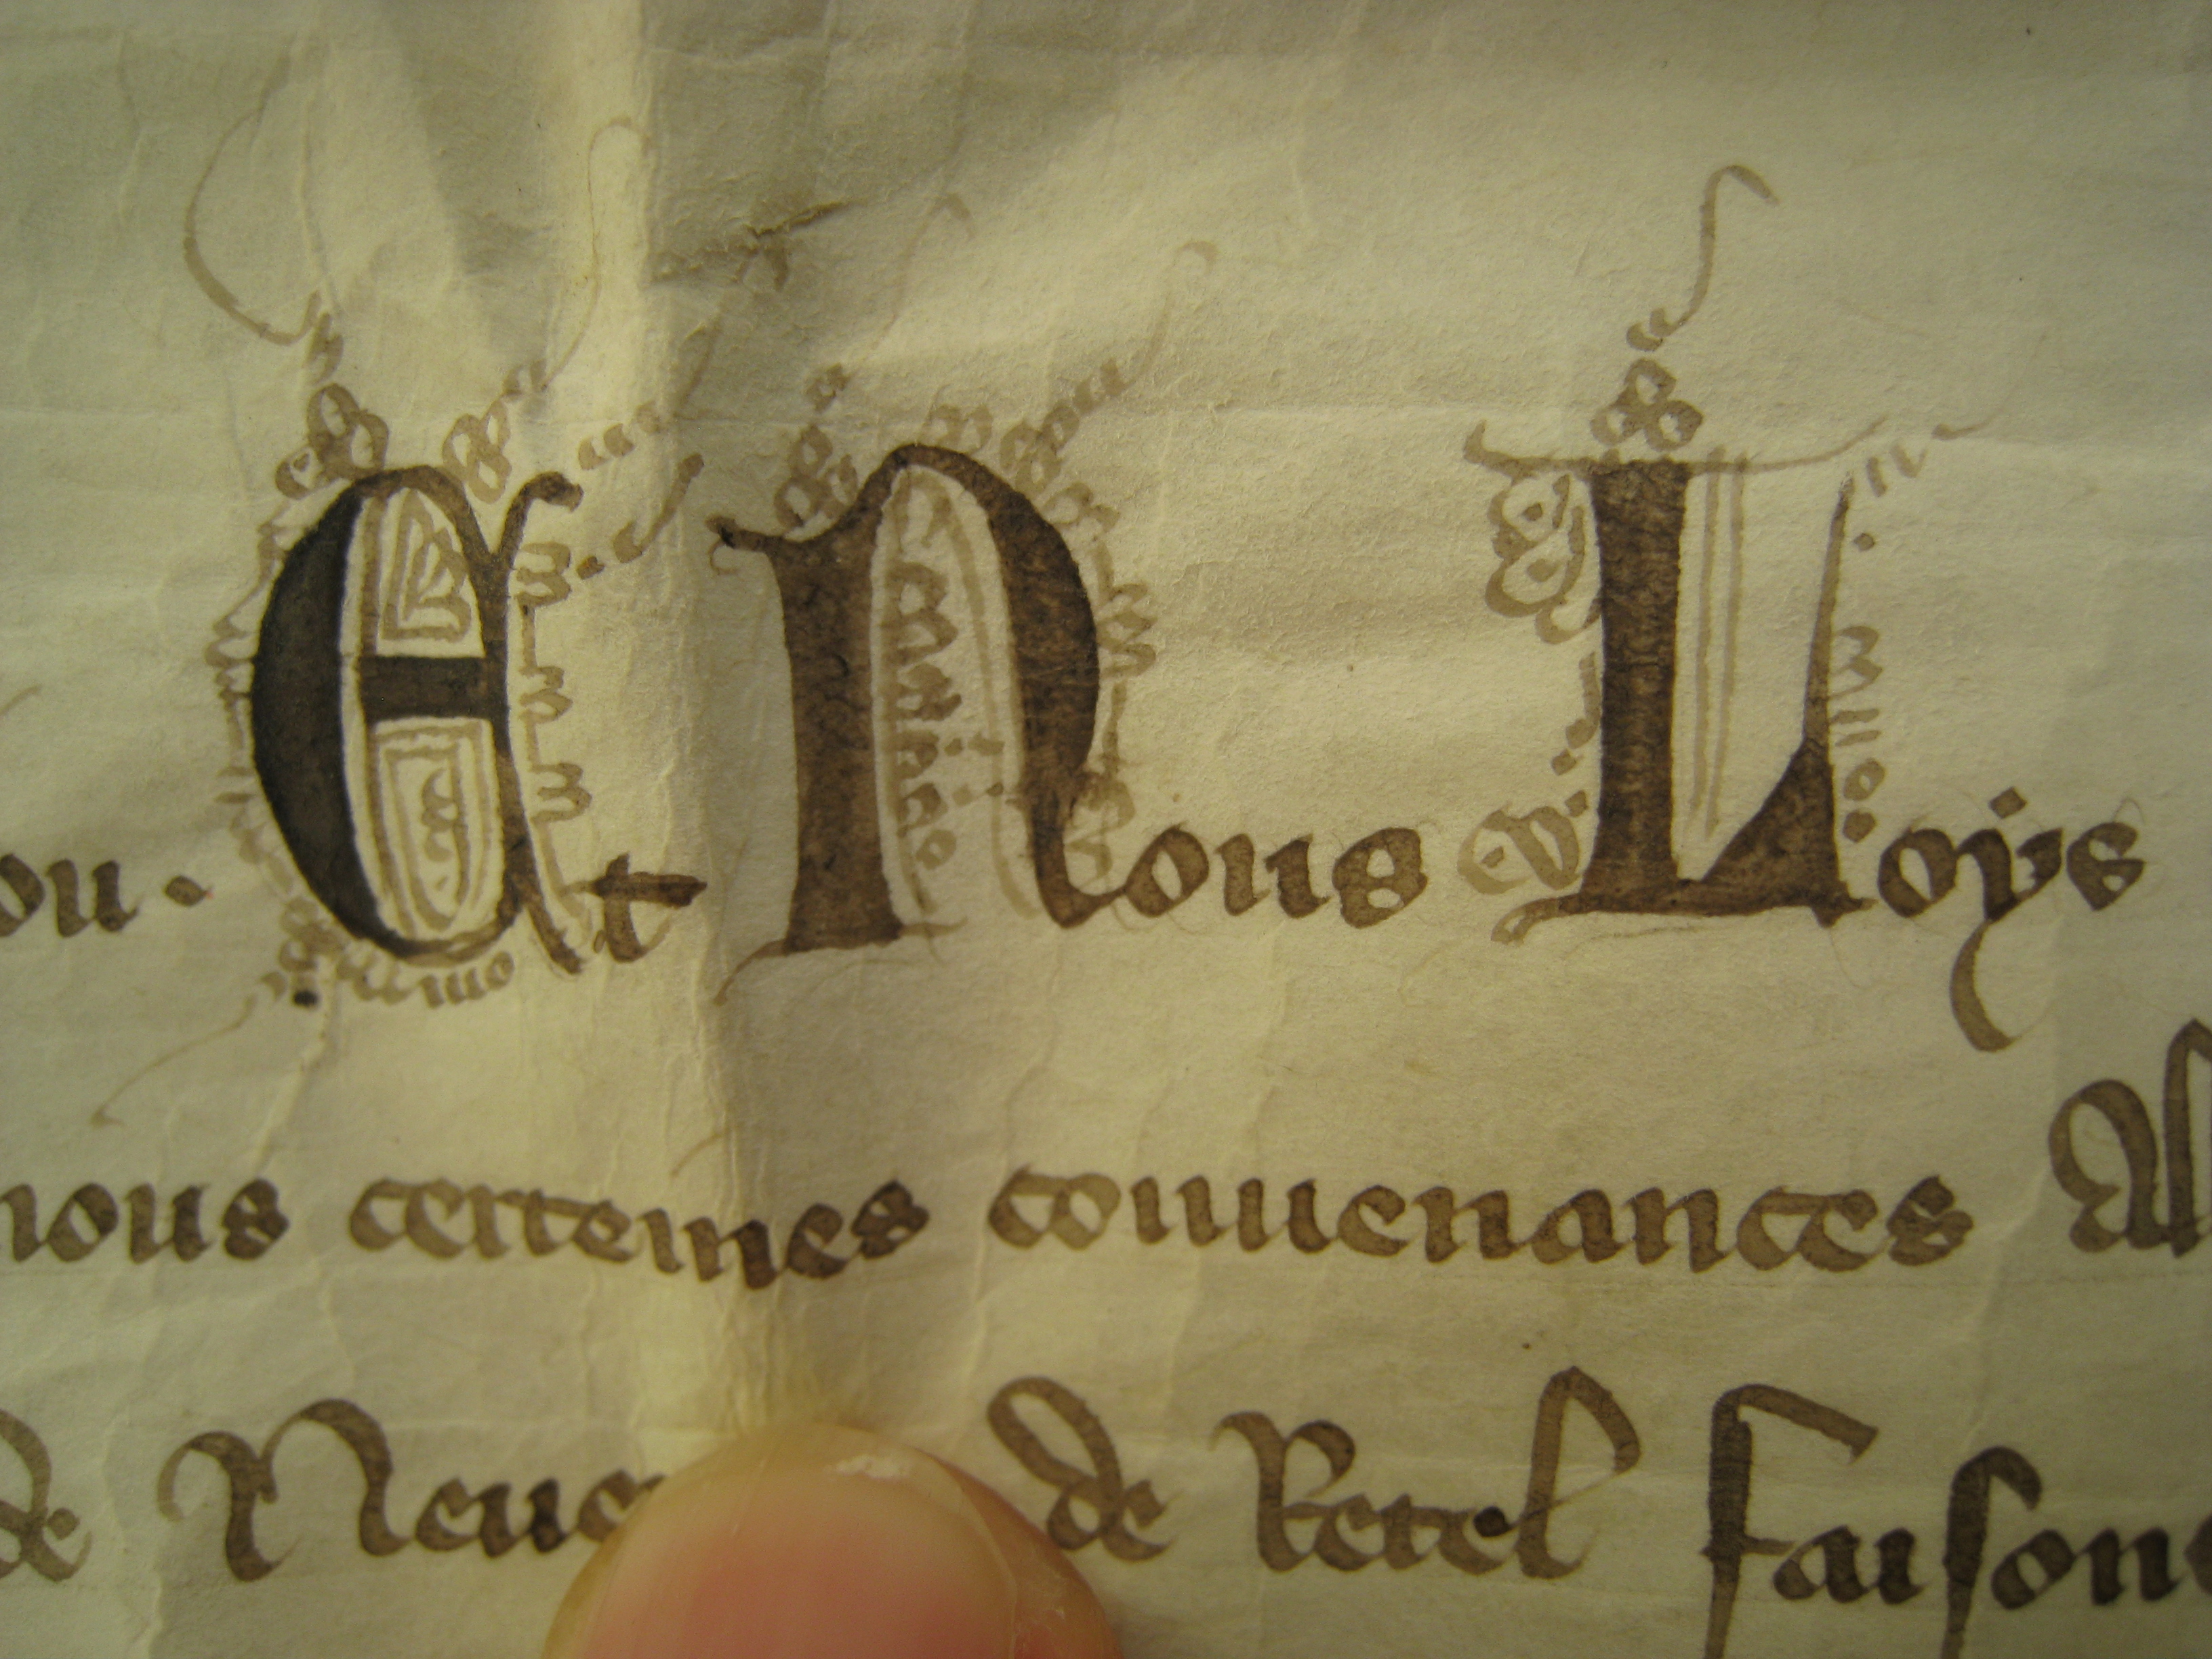 ou. Et Nous Loys
nous certeines conuenances Al
de Neue de Retel faisons